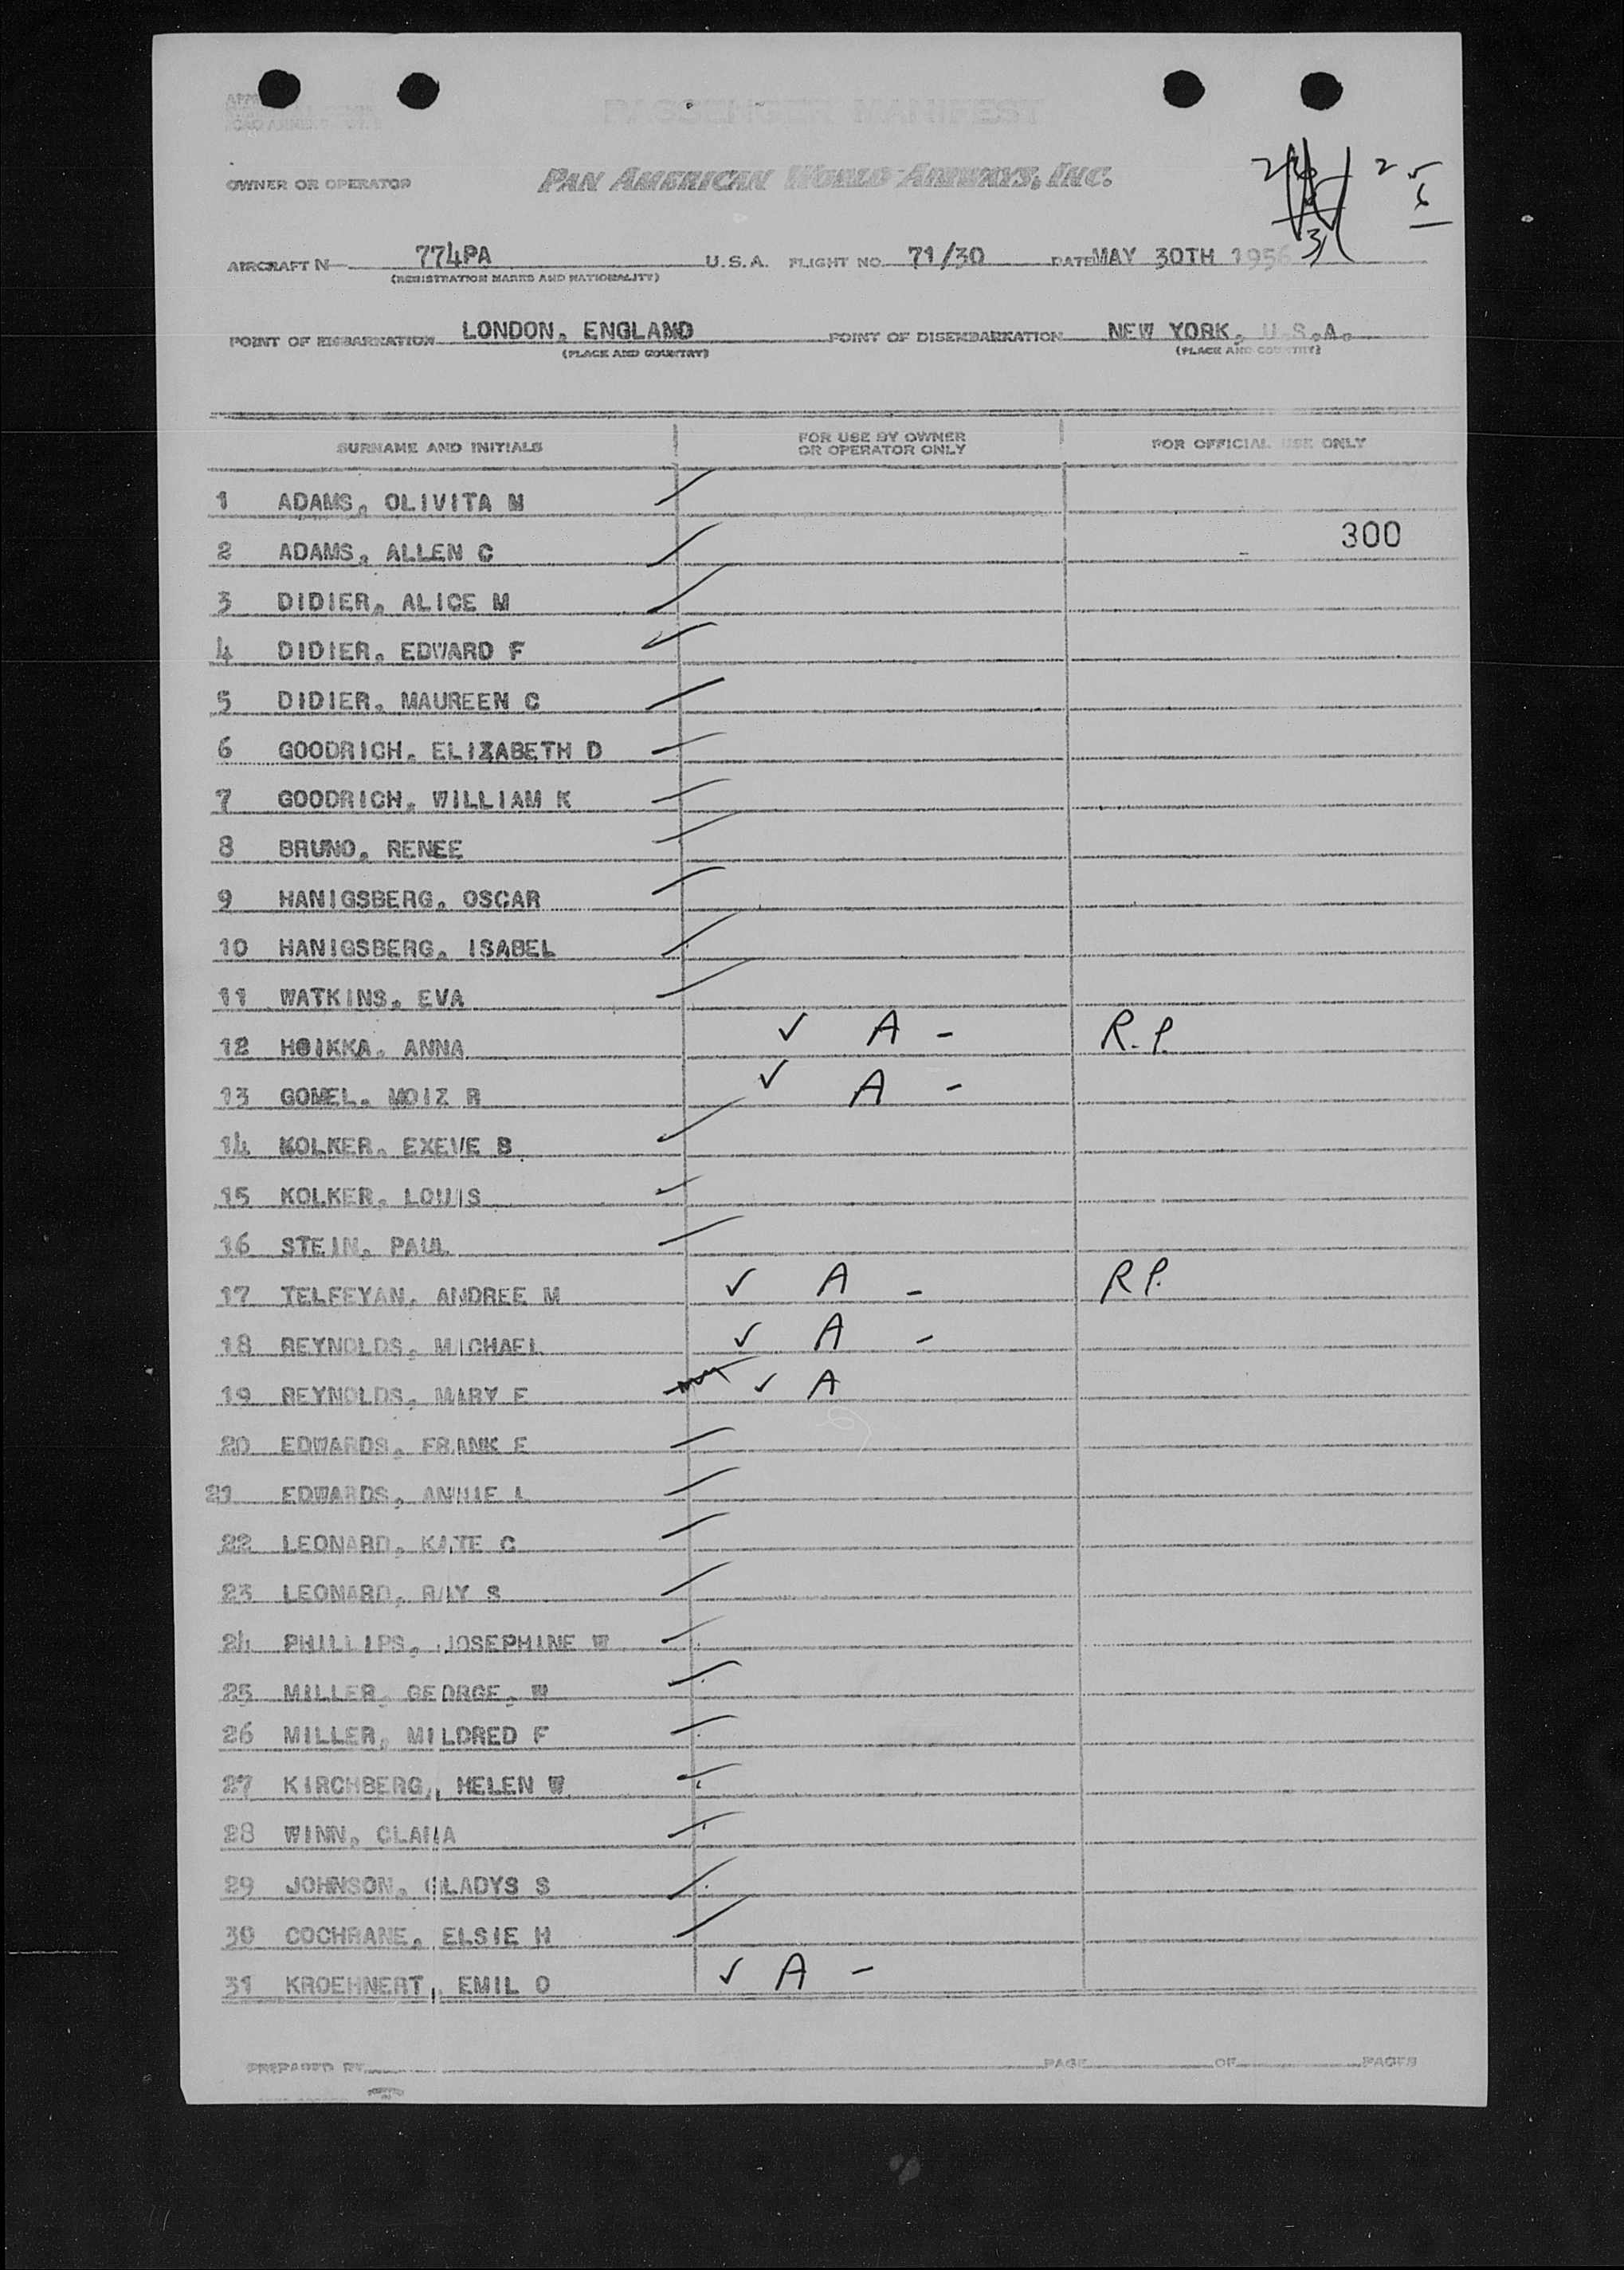 PASSENGER MANIFEST
OWNER OR OPERATOR PAN AMERICAN WORLD AIRWAYS, INC.
2 5
6
31
AIRCRAFT N 774PA U.S.A. FLIGHT NO. 71/30 DATE MAY 30TH 1956
(REGISTRATION MARKS AND NATIONALITY)
POINT OF EMBARKATION LONDON, ENGLAND POINT OF DISEMBARKATION NEW YORK, U.S.A.
(PLACE AND COUNTRY) (PLACE AND COUNTRY)
SURNAME AND INITIALS FOR USE BY OWNER OR OPERATOR ONLY FOR OFFICIAL USE ONLY
1 ADAMS, OLIVITA N
2 ADAMS, ALLEN C 300
3 DIDIER, ALICE M
4 DIDIER, EDWARD F
5 DIDIER, MAUREEN C
6 GOODRICH, ELIZABETH D
7 GOODRICH, WILLIAM K
8 BRUNO, RENEE
9 HANIGSBERG, OSCAR
10 HANIGSBERG, ISABEL
11 WATKINS, EVA
12 HOIKKA, ANNA ✓ A - R.P.
13 GOMEL, MOIZ R ✓ A -
14 KOLKER, EXEVE B
15 KOLKER, LOUIS
16 STEIN, PAUL
17 TELFEYAN, ANDREE M ✓ A - R P.
18 REYNOLDS, MICHAEL ✓ A -
19 REYNOLDS, MARY E ✓ A
20 EDWARDS, FRANK E
21 EDWARDS, ANNIE L
22 LEONARD, KATE C
23 LEONARD, RAY S
24 PHILLIPS, JOSEPHINE W
25 MILLER, GEORGE, W
26 MILLER, MILDRED F
27 KIRCHBERG, HELEN W
28 WINN, CLARA
29 JOHNSON, GLADYS S
30 COCHRANE, ELSIE H
31 KROEHNERT, EMIL O ✓ A -
PREPARED BY PAGE OF PAGES